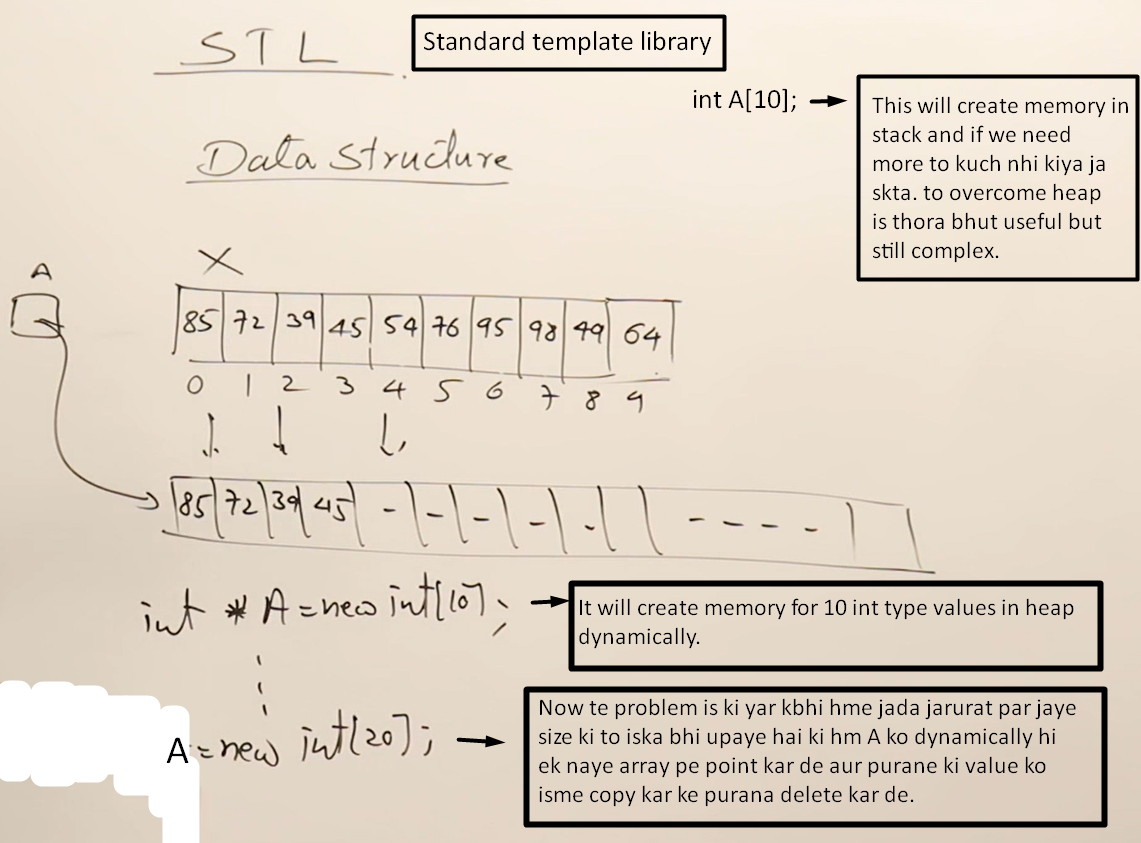 STL
Standard template library
int A[10];
This will create memory in
stack and if we need
more to kuch nhi kiya ja
skta. to overcome heap
is thora bhut useful but
still complex.
Data Structure
A
85 72 39 45 54 76 95 98 49 64
0 1 2 3 4 5 6 7 8 9
85 72 39 45 - - - - - - - - -
int * A = new int[10];
It will create memory for 10 int type values in heap
dynamically.
A = new int[20];
Now te problem is ki yar kbhi hme jada jarurat par jaye
size ki to iska bhi upaye hai ki hm A ko dynamically hi
ek naye array pe point kar de aur purane ki value ko
isme copy kar ke purana delete kar de.